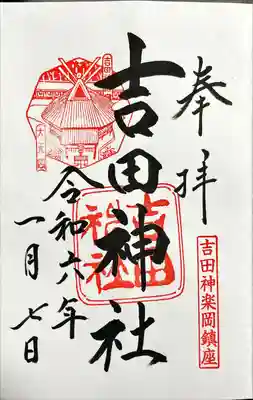 奉拝
吉田神楽岡鎮座
吉田神社
吉田神社
令和六年
一月七日